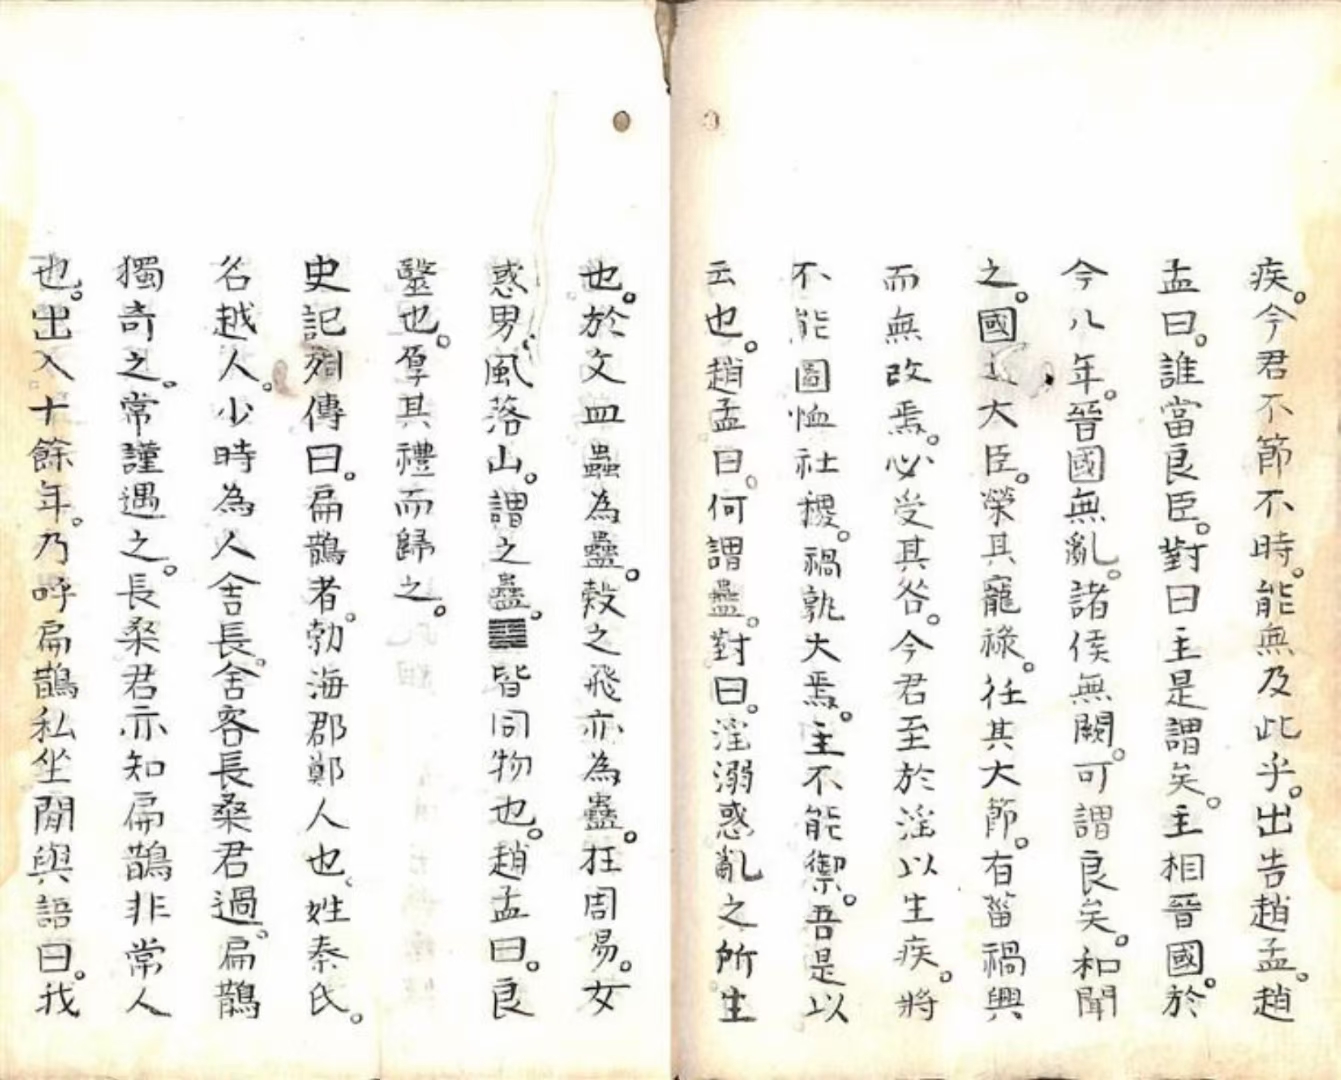 疾。今君不節不時。能無及此乎。出告趙孟。趙
孟曰。誰當良臣。對曰主是謂矣。主相晉國。於
今八年。晉國無亂。諸侯無闕。可謂良矣。和聞
之。國之大臣。榮其寵祿。任其大節。有菑禍興
而無改焉。必受其咎。今君至於淫以生疾。將
不能圖恤社稷。禍孰大焉。主不能禦。吾是以
云也。趙孟曰。何謂蠱。對曰。淫溺惑亂之所生
也。於文皿蟲為蠱。穀之飛亦為蠱。在周易。女
惑男。風落山。謂之蠱。䷑皆同物也。趙孟曰。良
毉也。厚其禮而歸之。
史記列傳曰。扁鵲者。勃海郡鄭人也。姓秦氏。
名越人。少時為人舍長。舍客長桑君過。扁鵲
獨奇之。常謹遇之。長桑君亦知扁鵲非常人
也。出入十餘年。乃呼扁鵲私坐。閒與語曰。我